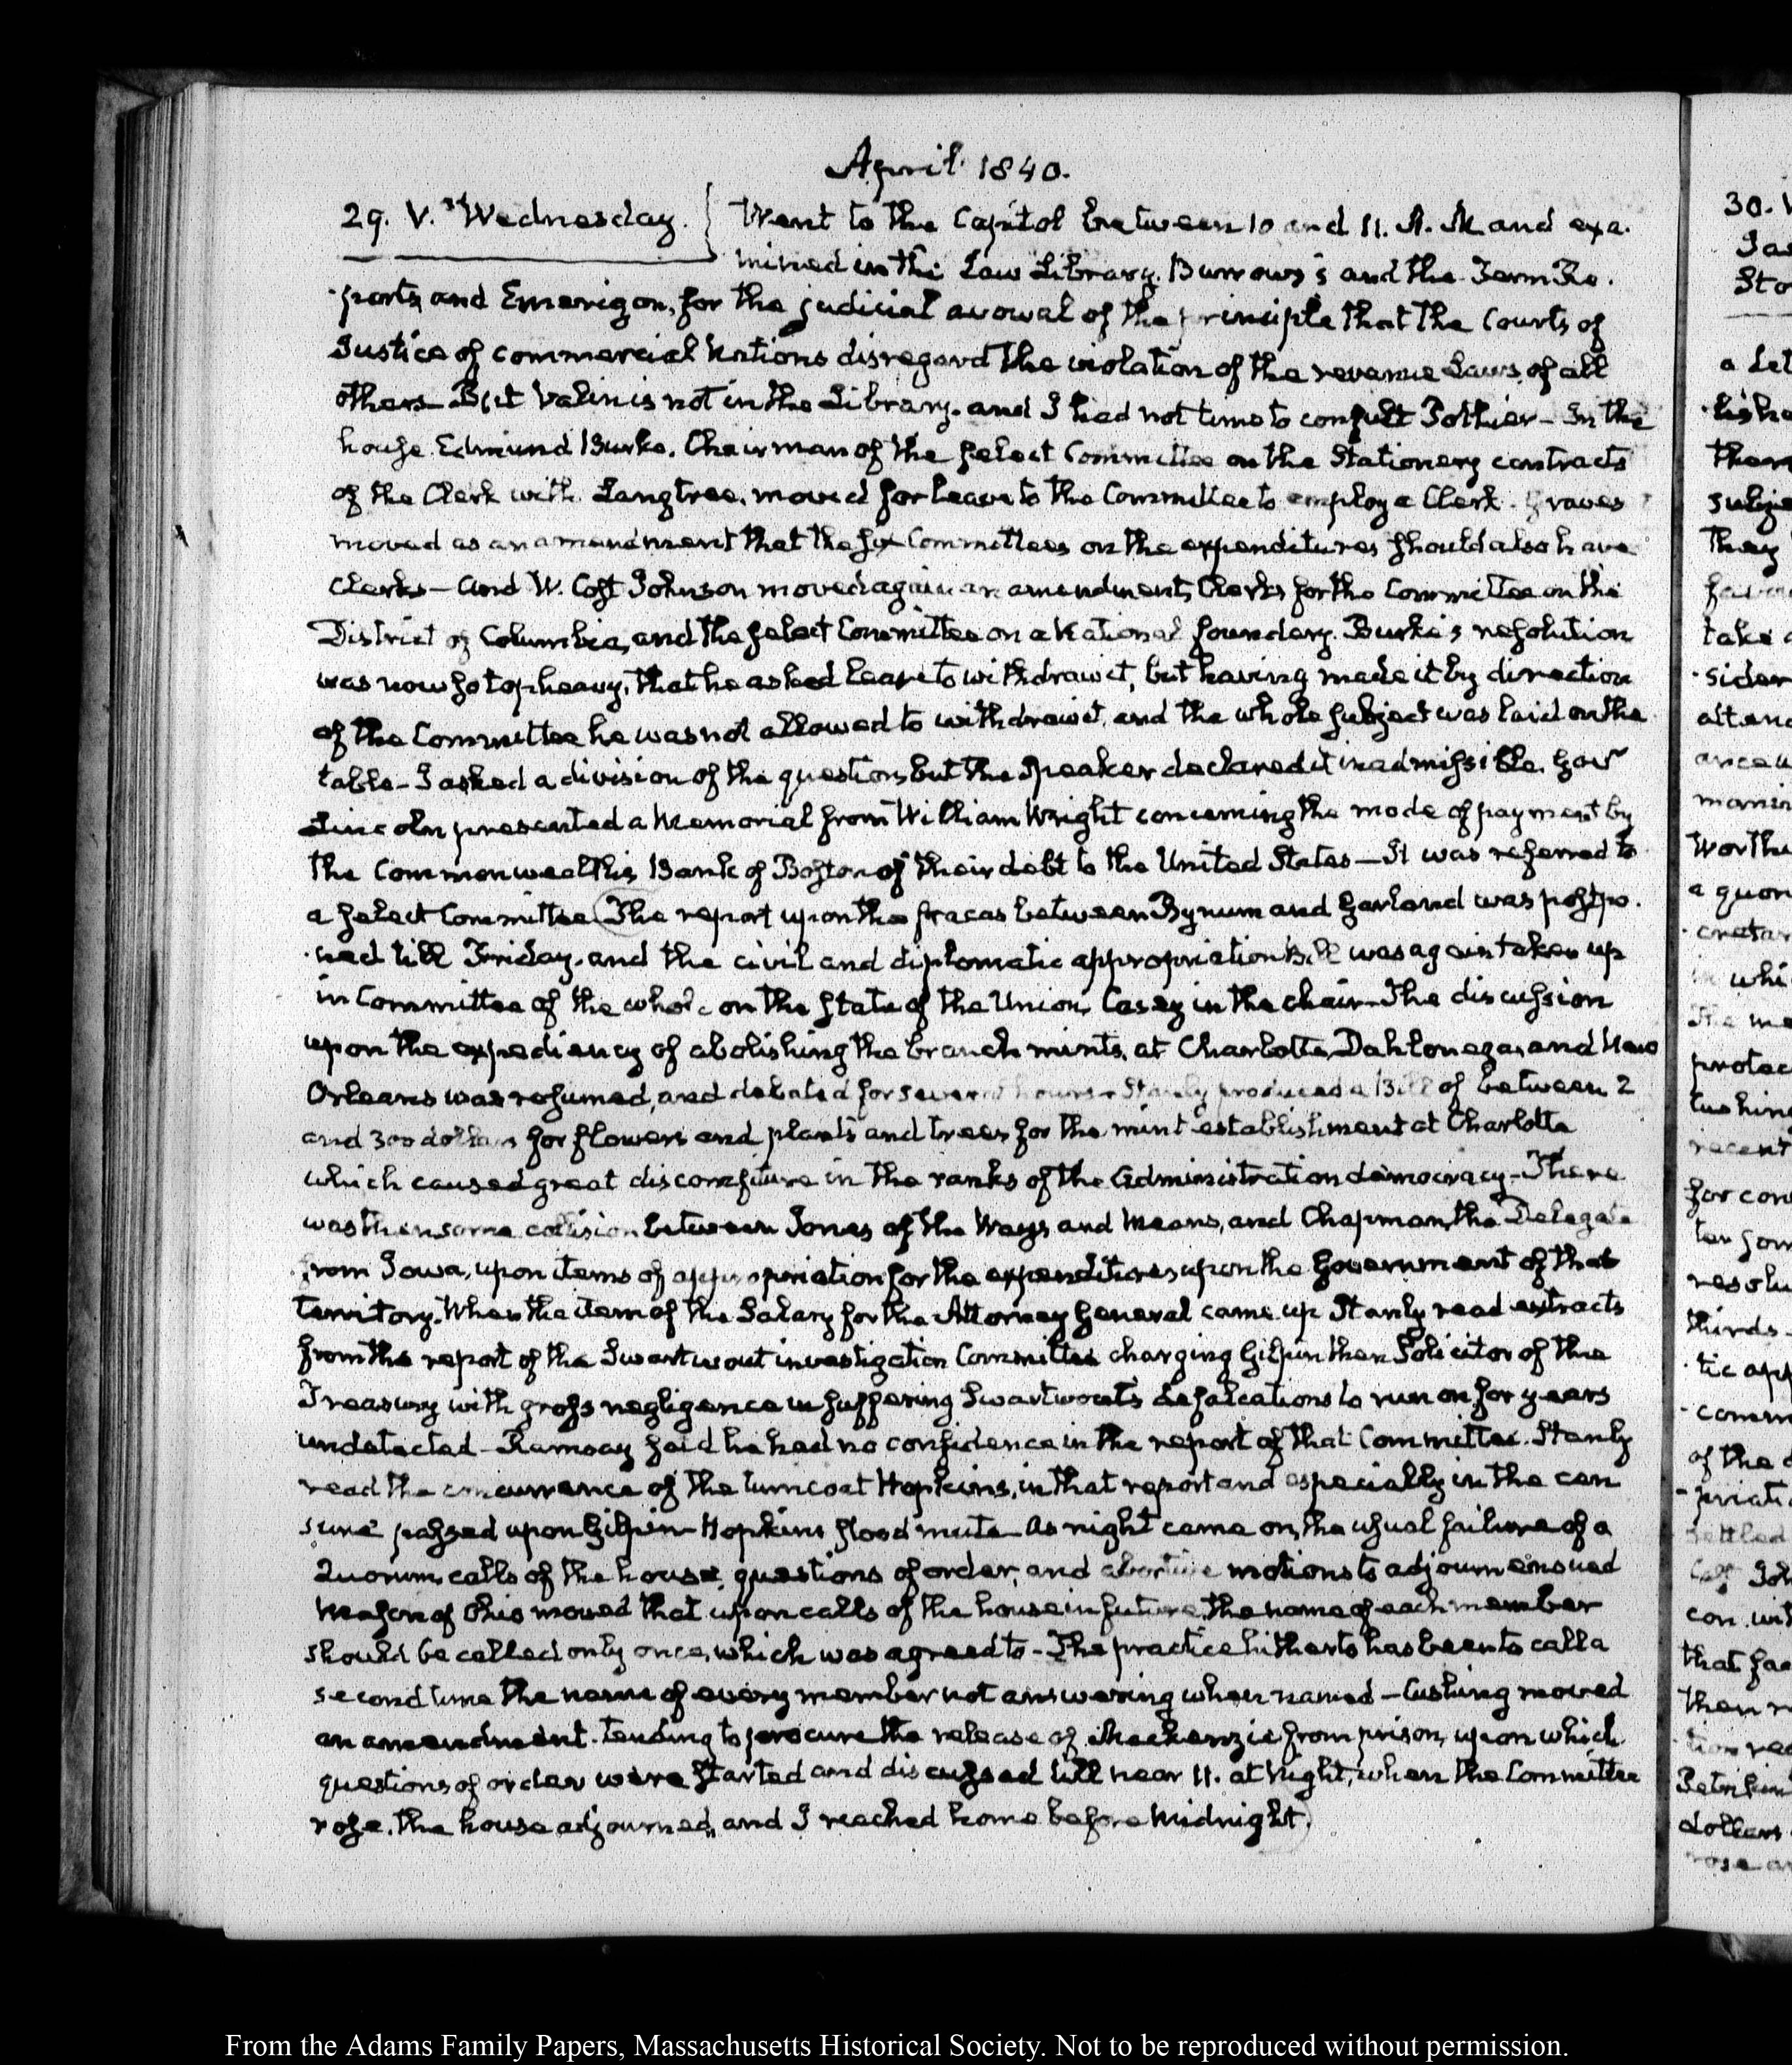 April 1840.
29. V. Wednesday. Went to the Capitol between 10 and 11. A. M and exa-
mined in the Law Library. Burrows's and the Term Re-
-ports, and Emerigon, for the judicial avowal of the principle that the Courts of
Justice of commercial Nations disregard the violation of the revenue Laws, of all
others— But Valin is not in the Library. and I had not time to consult Pothier— In the
house Edmund Burke. Chairman of the select Committee on the Stationery contracts
of the Clerk with Langtree, moved for leave to the Committee to employ a Clerk. Graves
moved as an amendment that the six Committees on the expenditures should also have
Clerks— and W. Cost Johnson moved again an amendment, Clerks for the Committee on the
District of Columbia, and the select Committee on a National foundery. Burke's resolution
was now so top heavy, that he asked leave to withdraw it, but having made it by direction
of the Committee he was not allowed to withdraw it, and the whole subject was laid on the
table— I asked a division of the question, but the Speaker declared it inadmissible. Govr
Lincoln presented a Memorial from William Wright concerning the mode of payment by
the Commonwealth's Bank of Boston of their debt to the United States— It was referred to
a select Committee (The report upon the fracas between Bynum and Garland was postpo-
-ned till Friday. and the civil and diplomatic appropriation Bill was again taken up
in Committee of the whole on the state of the Union, Casey in the chair— The discussion
upon the expediency of abolishing the branch mints, at Charlotte, Dahlonega, and New
Orleans was resumed, and debated for several hours— Stanly produced a Bill of between 2
and 300 dollars for flowers and plants and trees for the mint establishment at Charlotte
which caused great discomfiture in the ranks of the Administration democracy— There
was then some collision between Jones of the Ways and Means, and Chapman, the Delegate
from Iowa, upon items of appropriation for the expenditures upon the Government of that
Territory. When the item of the Salary for the Attorney General came up Stanly read extracts
from the report of the Swartwout investigation Committee charging Gilpin then Solicitor of the
Treasury with gross negligence in suffering Swartwout's defalcations to run on for years
undetected— Ramsay said he had no confidence in the report of that Committee. Stanly
read the concurrence of the turncoat Hopkins, in that report and especially in the cen
sure passed upon Gilpin— Hopkins stood mute— As night came on, the usual failure of a
Quorum, calls of the house, questions of order, and abortive motions to adjourn ensued
Mason of Ohio moved that upon calls of the house in future, the name of each member
should be called only once, which was agreed to— The practice hitherto has been to call a
second time the name of every member not answering when named— Cushing moved
an amendment. tending to procure the release of Mackenzie from prison, upon which
questions of order were started and discussed till near 11. at Night, when the Committee
rose. the house adjourned, and I reached home before Midnight.)
30.
a
of the
dollars
From the Adams Family Papers, Massachusetts Historical Society. Not to be reproduced without permission.